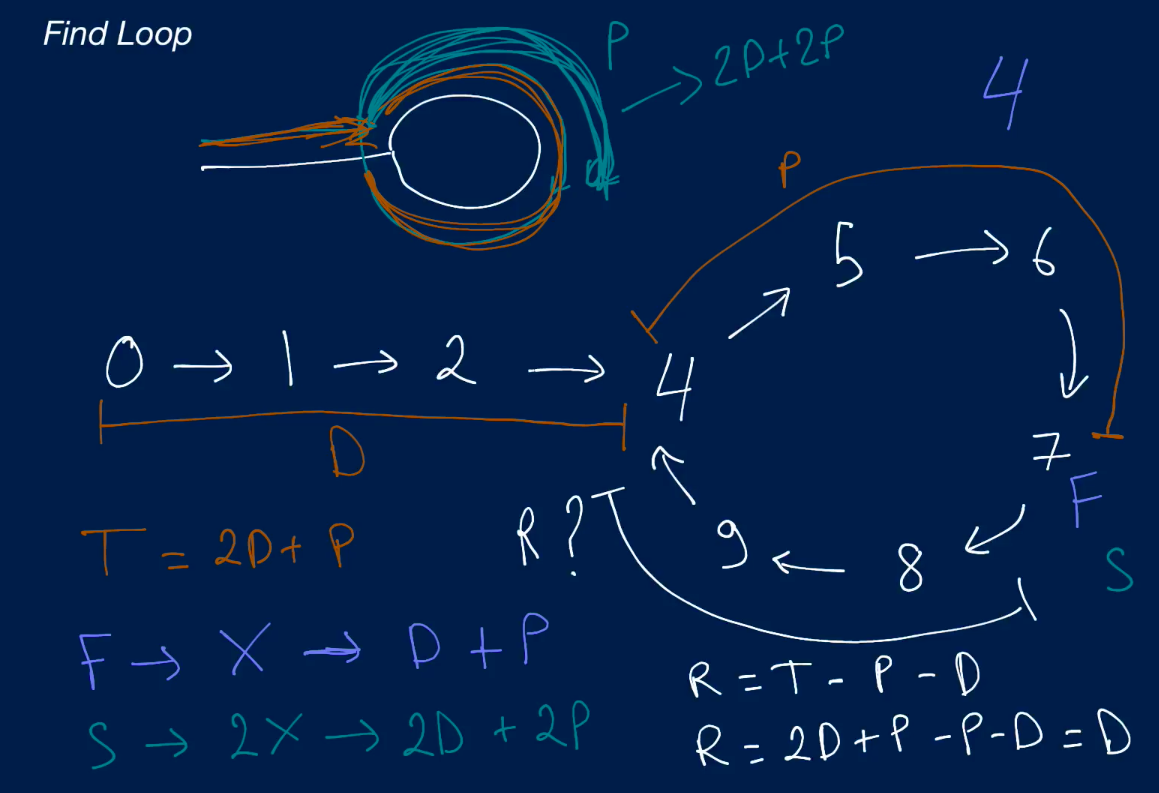 Find Loop
P → 2D+2P
4
P
5 → 6
0 → 1 → 2 → 4
D
7
F
R ?
9 ← 8
S
T = 2D + P
F → X → D + P
S → 2X → 2D + 2P
R = T - P - D
R = 2D + P - P - D = D